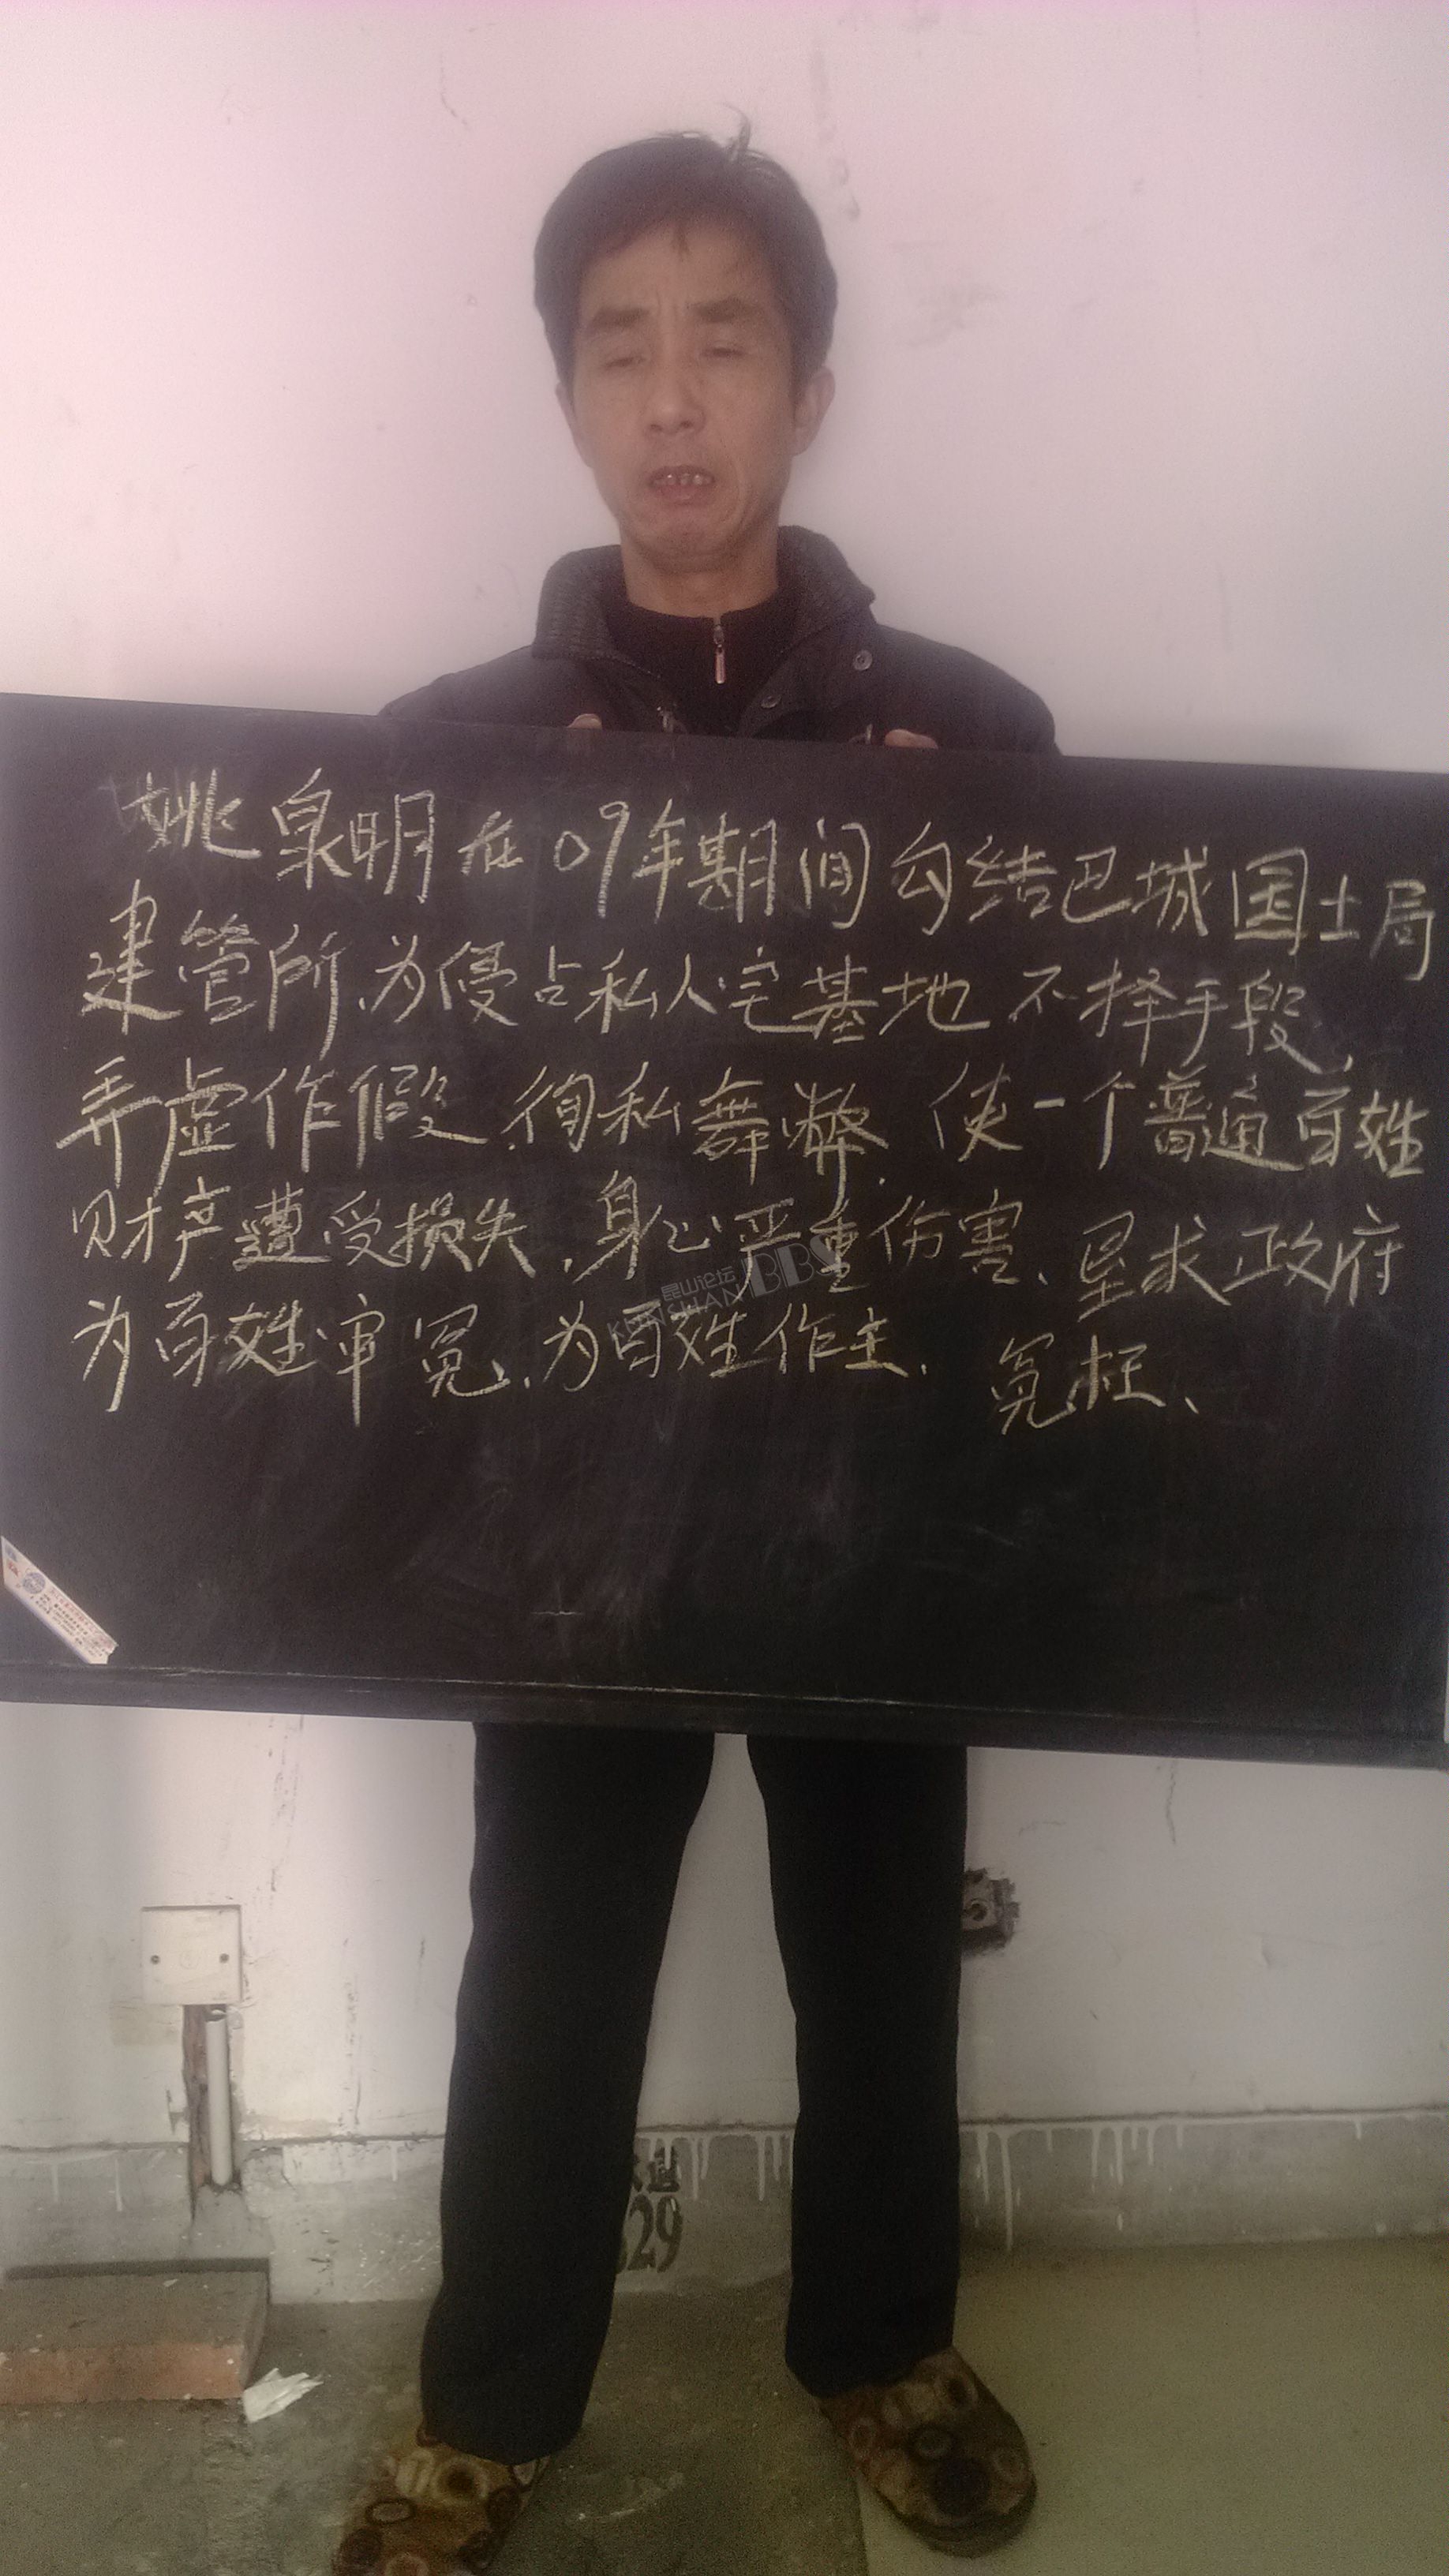 姚泉明在09年期间勾结巴城国土局
建管所、为侵占私人宅基地不择手段、
弄虚作假、徇私舞弊、使一个普通百姓
财产遭受损失、身心严重伤害、恳求政府
为百姓审冤、为百姓作主、冤枉、
昆山论坛 BBS
KUNSHAN
29